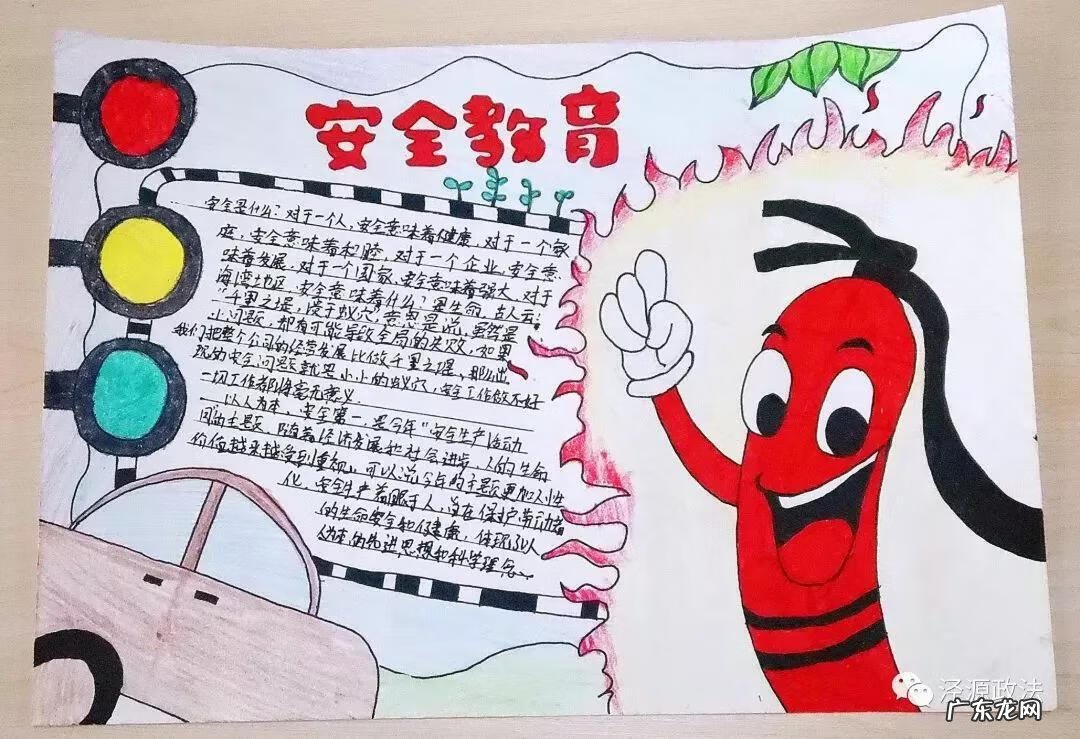 安全教育
安全是什么？对于一个人，安全意味着健康，对于一个家
庭，安全意味着和睦，对于一个企业，安全意
味着发展，对于一个国家，安全意味着强大，对于
海湾地区，安全意味着什么？是生命，古人云：
“千里之堤，溃于蚁穴”意思是说，虽然是
小问题，都有可能导致全局的失败，如果
我们把整个公司的经营发展比做千里之堤，那么出
现的安全问题就是小小的蚁穴，安全工作做不好
一切工作都将毫无意义．
以人为本，安全第一，是今年“安全生产活动
月”的主题，随着经济发展和社会进步，人的生命
价值越来越得到重视，可以说今年的主题更加人性
化，安全生产着眼于人，旨在保护劳动者
的生命安全和健康，体现了以人
为本的先进思想和科学理念．
泽源政法
广东龙网